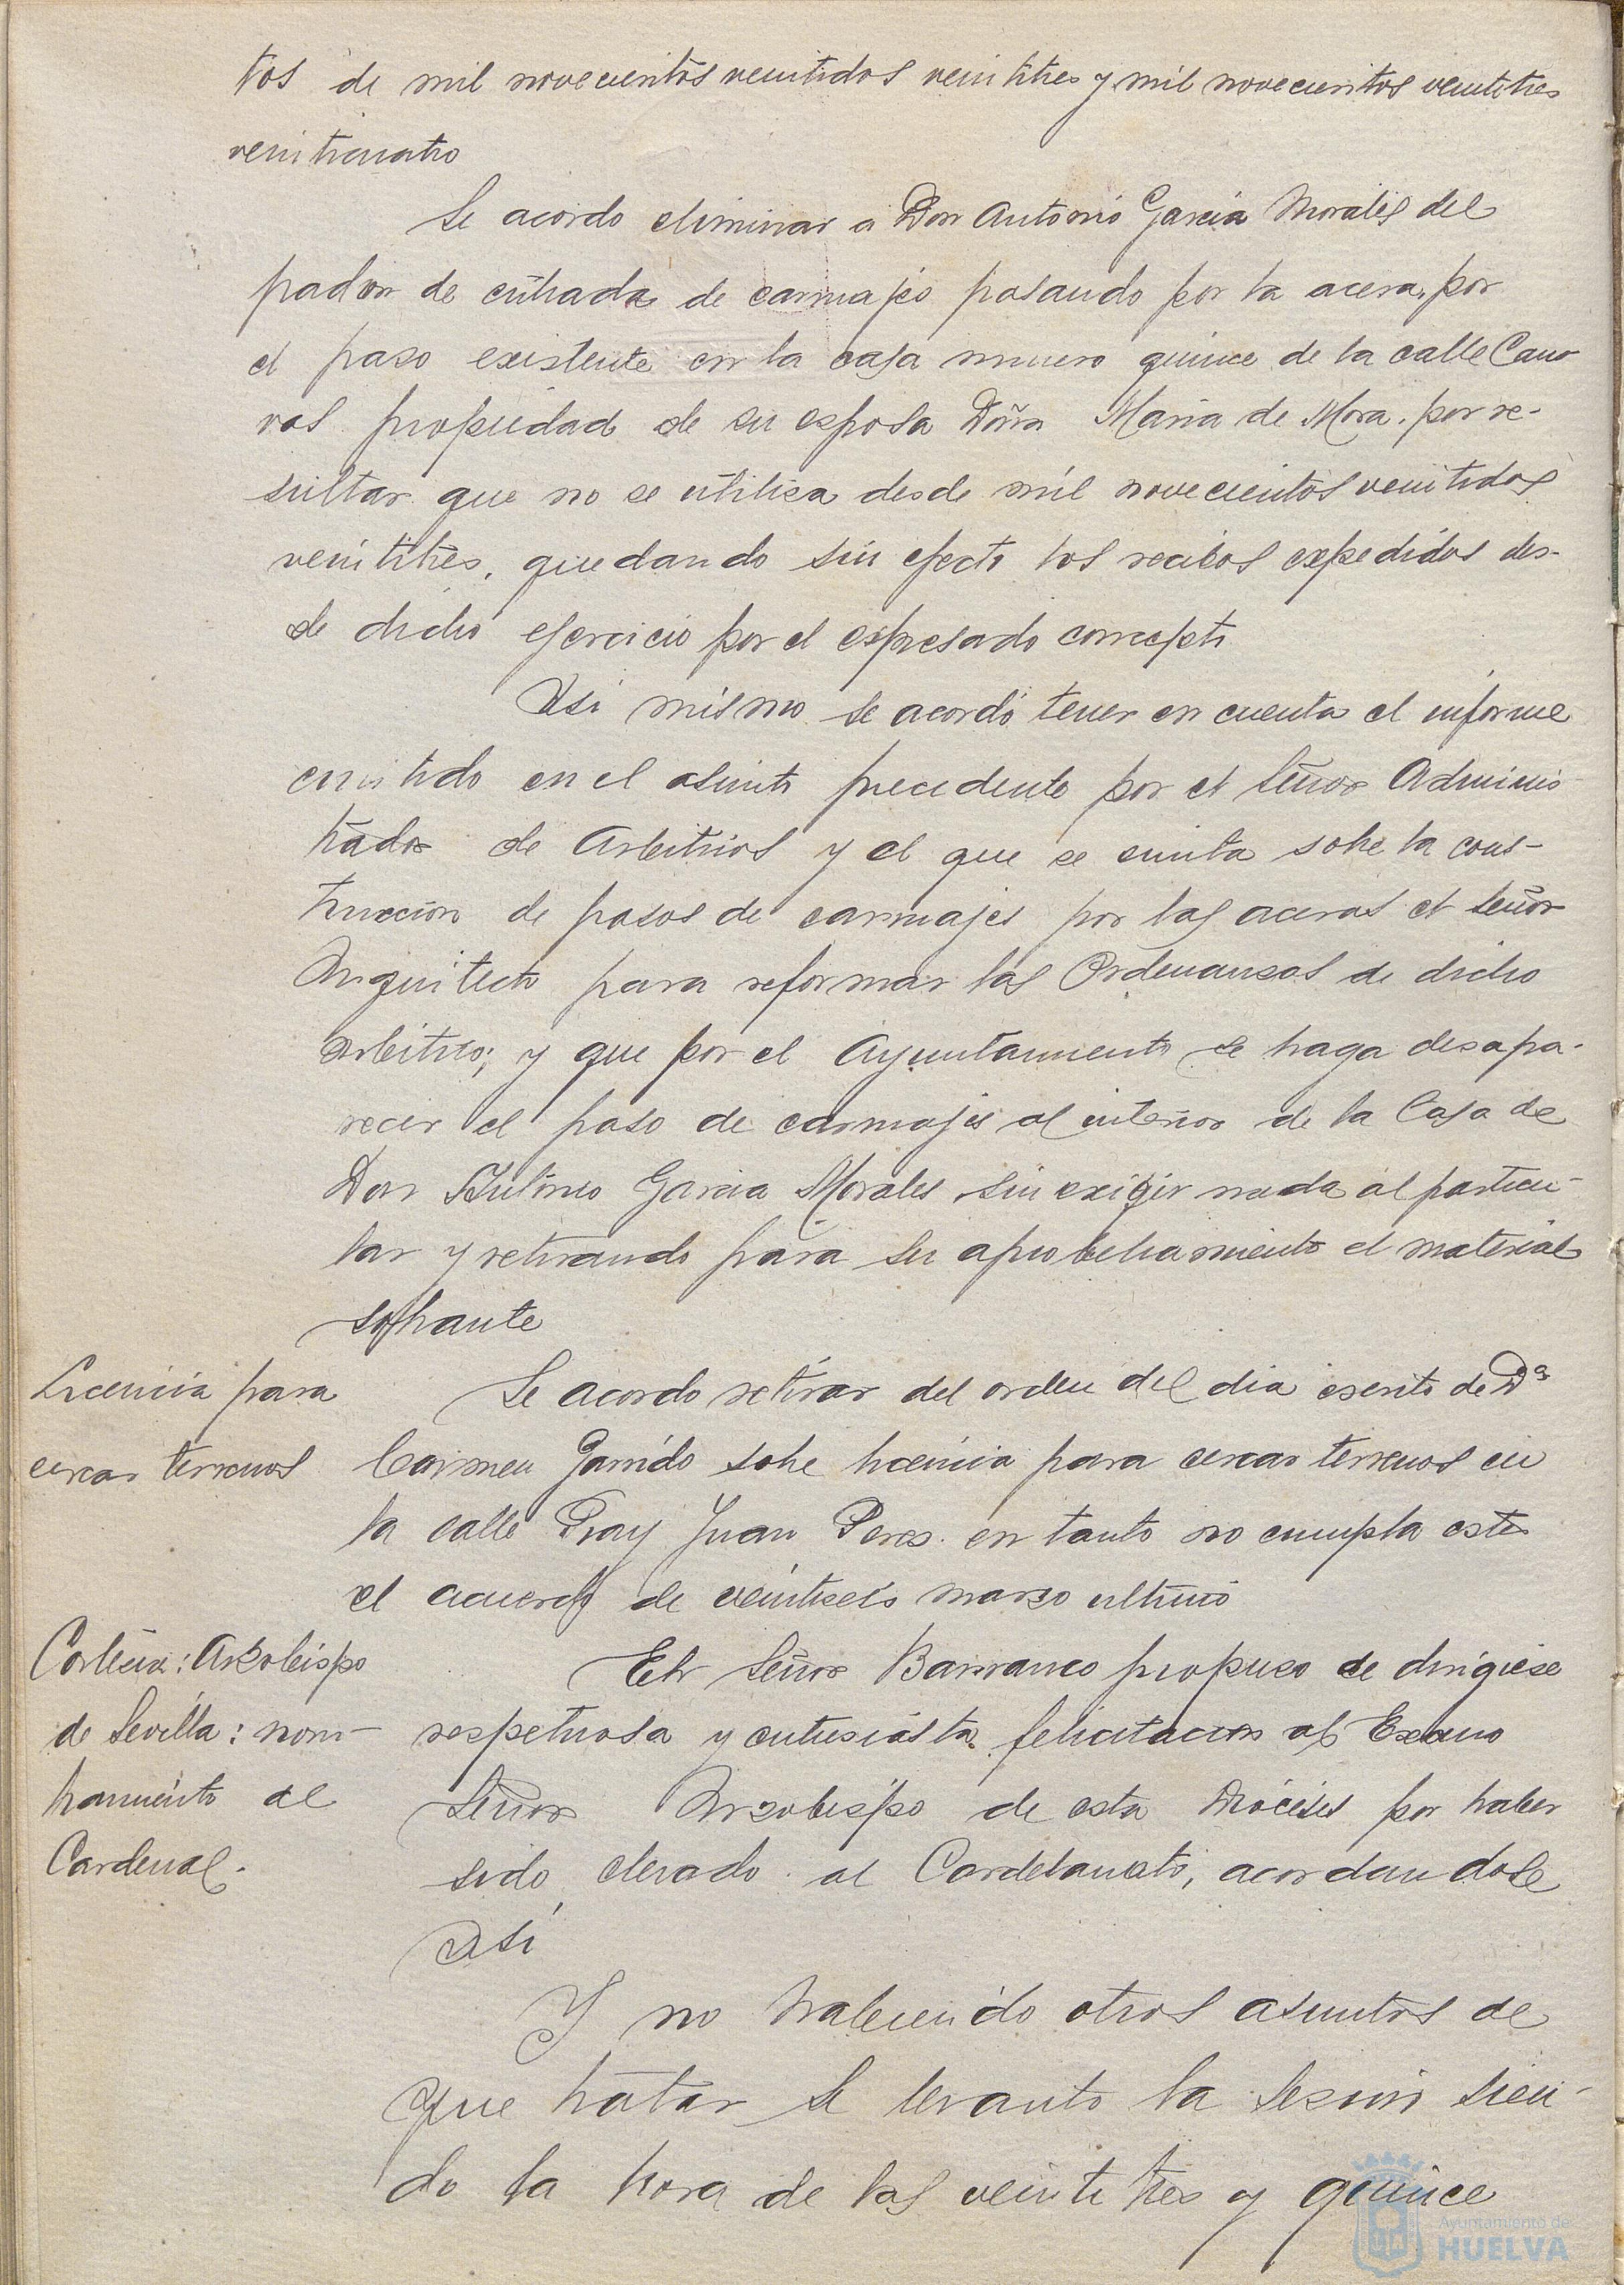 tos de mil novecientos veintidos veintitres y mil novecientos veintitres
veinticuatro
Se acordo eliminar a Don Antonio Garcia Morales del
padron de entrada de carruajes pasando por la acera, por
el paso existente en la casa numero quince de la calle Cano
vas propiedad de su esposa Doña Maria de Mora. por re-
sultar que no se utiliza desde mil novecientos veintidos
veintitres, quedando sin efecto los recibos expedidos des-
de dicho ejercicio por el espresado concepto
Asi mismo se acordó tener en cuenta el informe
emitido en el asunto precedente por el Señor Adminis
trador de Arbitrios y el que se emita sobre la cons-
truccion de pasos de carruajes por las aceras el señor
Arquitecto para reformar las Ordenanzas de dicho
arbitrio; y que por el Ayuntamiento se haga desapa-
recer el paso de carruajes al interior de la Casa de
Don Antonio Garcia Morales sin exigir nada al particu-
lar y retirando para su aprobechamiento el material
sobrante
Licencia para
cercar terrenos
Se acordo retirar del orden del dia escrito de Dª
Carmen Garrido sobre licencia para cercar terrenos en
la calle Fray Juan Perez en tanto no cumpla este
el acuerdo de veintiseis marzo ultimo
Cortesia: Arzobispo
de Sevilla: nom-
bramiento de
Cardenal.
El Señor Barranco propuso se dirigiese
respetuosa y entusiasta felicitacion al Excmo
Señor Arzobispo de esta Diócesis por haber
sido elevado al Cardelanato, acordandose
asi
Y no habiendo otros asuntos de
que tratar se levanto la sesion sien-
do la hora de las veintitres y quince
Ayuntamiento de
HUELVA